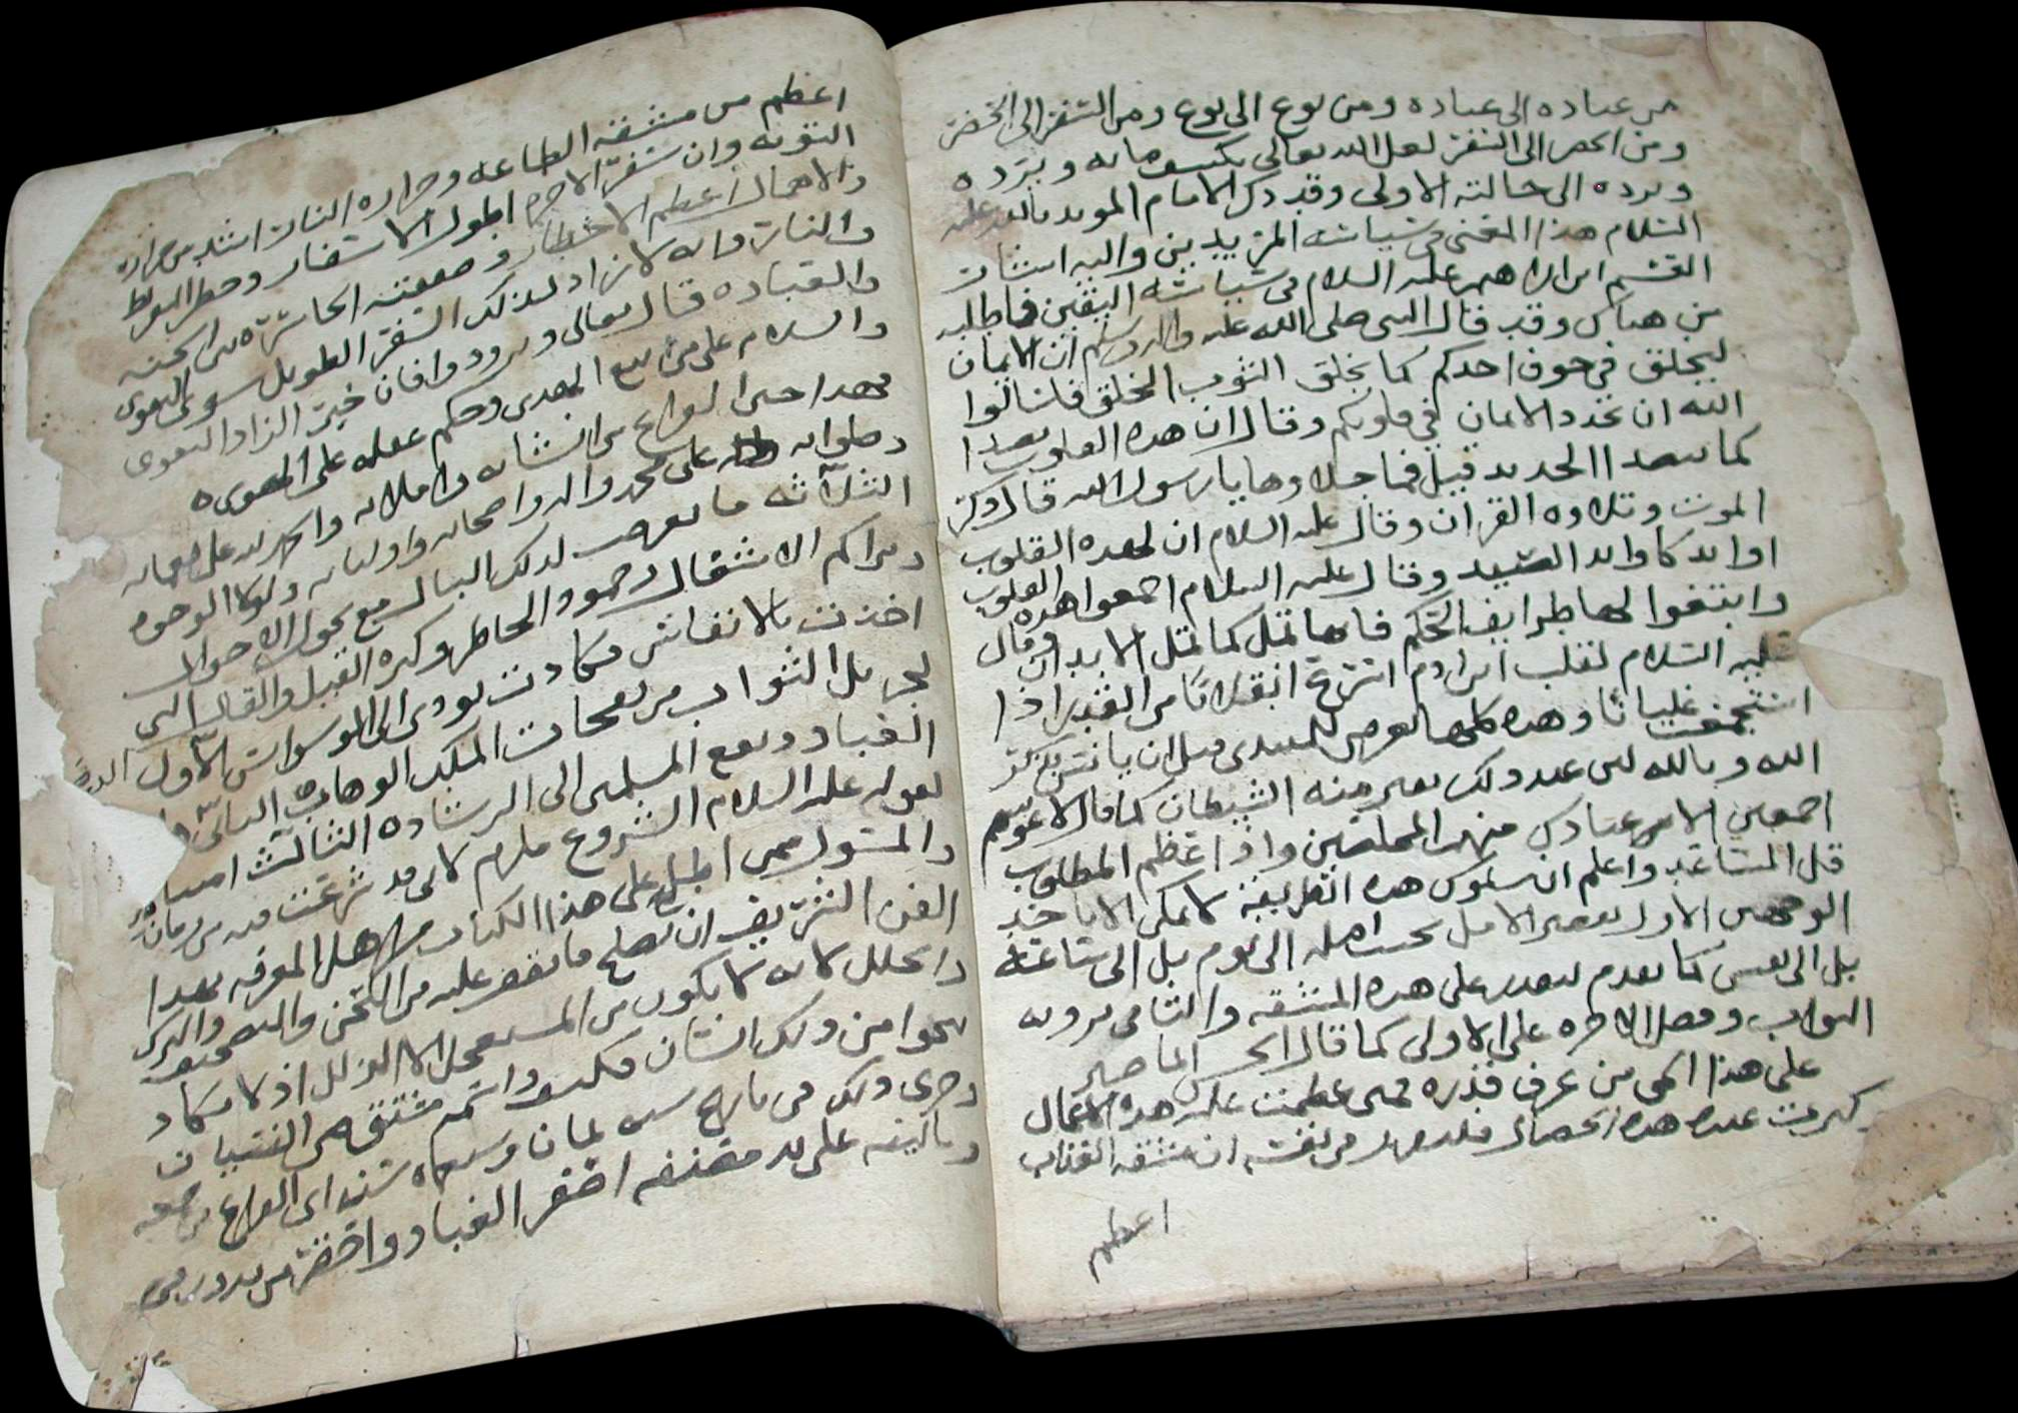 من عباده الى عباده ومن نوع الى نوع ومن السفر الى الحضر
ومن الحضر الى السفر لعل الله تعالى يكشف ما به ويرده
ويرده الى حالته الاولى وقد ذكر الامام المويد بالله عليه
السلام هذا المعنى في سياسه المريدين واليه اشار
القسم ابن ابراهيم عليه السلام في سياسه النفس فاطلبه
من هناك وقد قال النبي صلى الله عليه واله وسلم ان الايمان
ليخلق في جوف احدكم كما يخلق الثوب الخلق فاسالوا
الله ان يجدد الايمان في قلوبكم وقال ان هذه القلوب تصدا
كما يصدا الحديد قيل فما جلاوها يا رسول الله قال ذكر
الموت وتلاوه القران وقال عليه السلام ان لهذه القلوب
اوابد كاوابد الصيد وقال عليه السلام اجمعوا هذه القلوب
وابتغوا لها طرايف الحكم فانها تمل كما تمل الابدان وقال
عليه السلام لقلب ابن ادم اسرع انقلابا من القدر اذا
استجمعت غليانا وهذه كلها تعرض للمبتدي قبل ان يانس بذكر
الله وبالله لمن عند ذلك يفر منه الشيطان كما قال لاغوينهم
اجمعين الا عبادك منهم المخلصين واذا عظم المطلوب
قل المساعد واعلم ان سلوك هذه الطريقه لا يمكن الا باحد
الوجهين الاول تقصير الامل بحسب امله الى يوم بل الى ساعه
بل الى نفس كما تقدم ليصبر على هذه المشقه والثاني يرويه
الثواب وفضل الاخره على الاولى كما قال
على هذا المعنى من عرف قدره فمتى عظمت عليه هذه الاعمال
وكبرت عنده هذه الخصال فليعهد في نفسه ان مشقه العذاب
اعظم
اعظم من مشقه الطاعه وحراره النار اشد من حراره
التوبه وان سفر الاخره اطول الاسفار وخطر
والاهمال اعظم الاخطار وصفقته الخاسره من الجنه
والنار وانه لا زاد لذلك السفر الطويل سوى التقوى
والعباده قال تعالى وتزودوا فان خير الزاد التقوى
والسلام على من اتبع الهدى وحكم عقله على الهوى
فهذا حين الفراغ من انشائه واملائه والحمد لله على نعمائه
وصلواته على محمد واله واصحابه واوليائه ولولا الوجوه
الثلاثه ما تعرضت لذلك البال مع تحول الاحوال
وتراكم الاشغال وجمود الخاطر وكثره القيل والقال التي
اخذت بالانفاس وكادت تودي الى الوسواس الاول
لجزيل الثواب من نفحات الملك الوهاب الثاني
العباد ونفع المسلمين الى الرشاده الثالث
لقوله عليه السلام الشروع ملزم لاني قد شرعت فيه من زمان
والمسئول ممن اطلع على هذا الكتاب من اهل المعرفه بهذا
الفن الشريف ان يصلح ما يقف عليه من اللحن والتصحيف
والخلل لانه لا يكون من المستعجل الا الزلل اذ لا يكاد
ينجوا من ذلك انسان فكيف واسمه مشتق من النسيان
وجرى ذلك في تاريخ سنه ثمان وسبعمايه
وتاليفه على يد مصنفه افقر العباد واحقر من يدور في